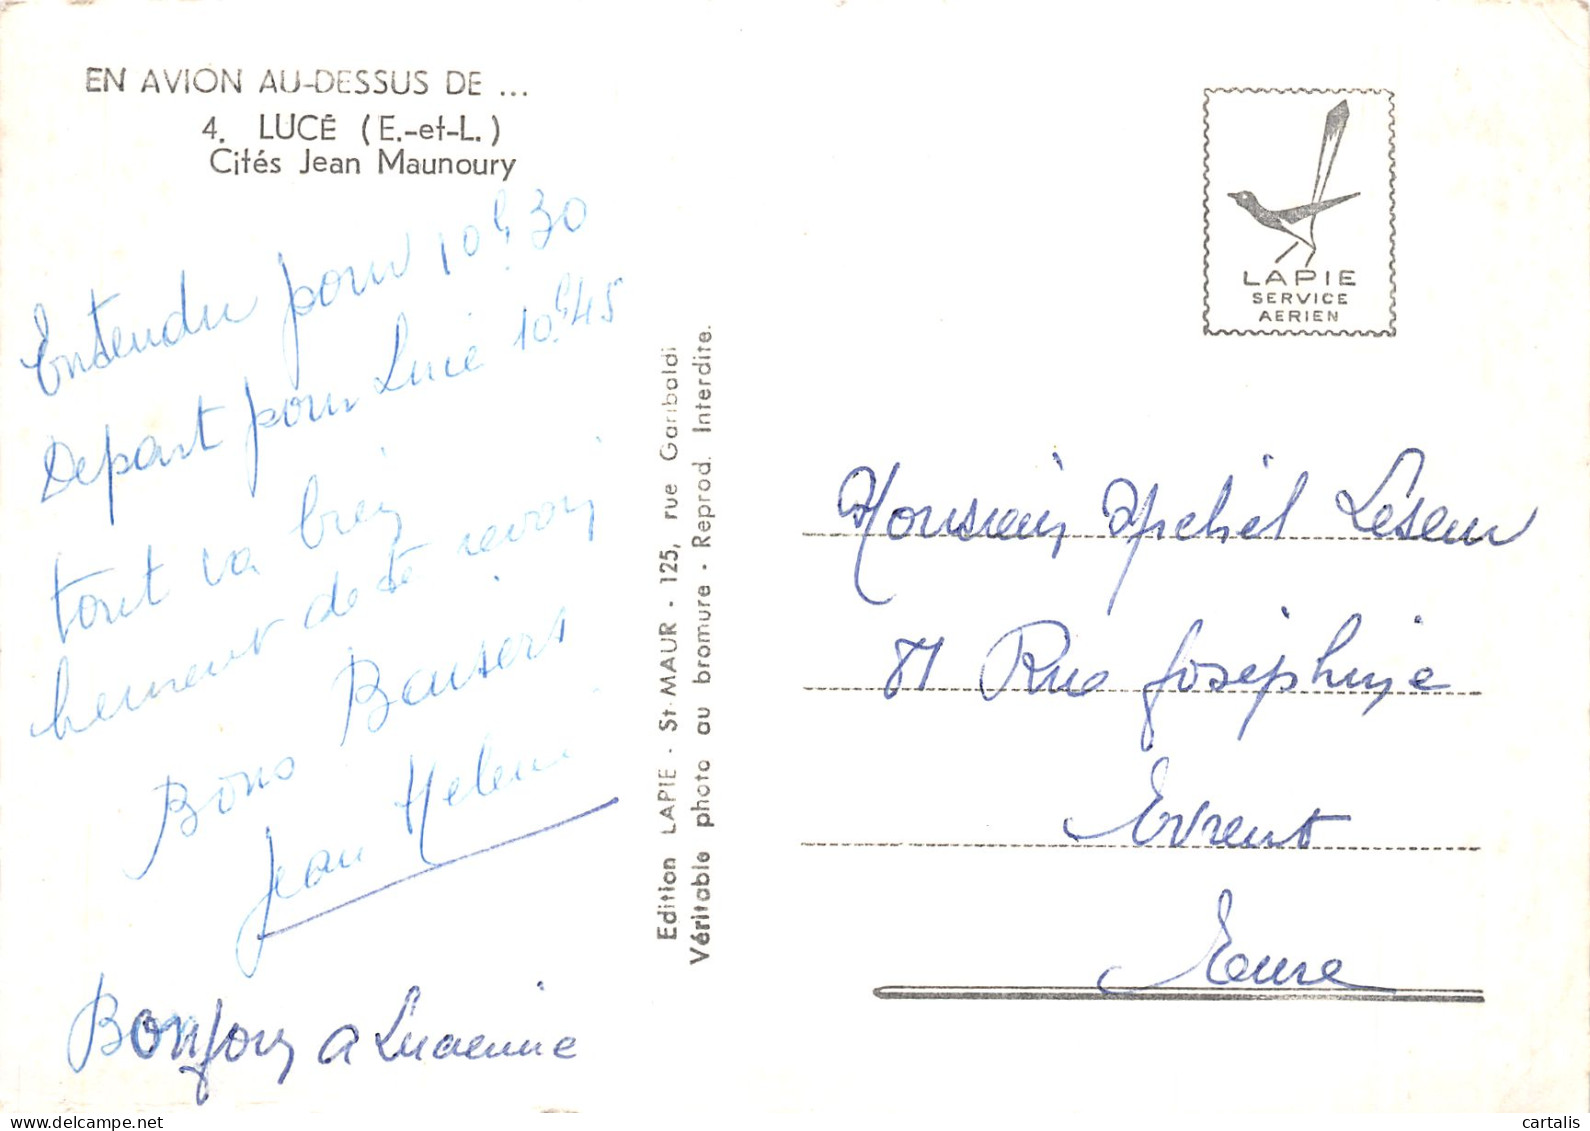 EN AVION AU-DESSUS DE ...
4. LUCÉ (E.-et-L.)
Cités Jean Maunoury
Entendu pour 10h30
Depart pour Lucé 10h45
tout va bien
heureux de te revoir
Bons Baisers
Jean Helene
Bonjour a Lucienne
Edition LAPIE - St-MAUR - 125, rue Garibaldi
Véritable photo au bromure - Reprod. Interdite.
LAPIE
SERVICE
AERIEN
Monsieur Michel Leseur
81 Rue Joséphine
Evreux
Eure
delcampe.net
cartalis